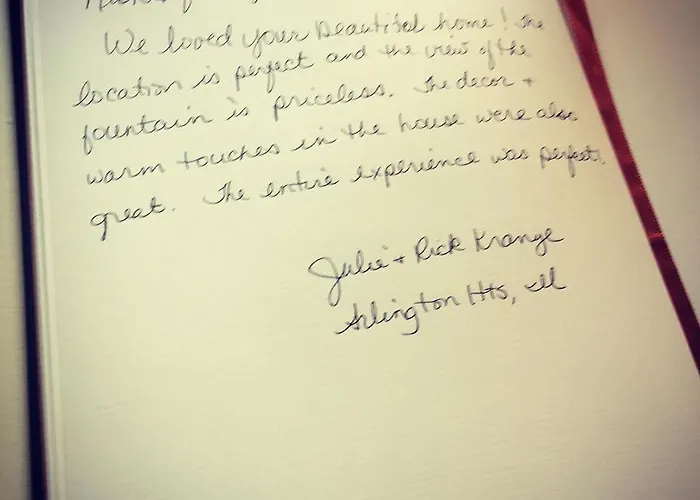 We loved your beautiful home! The
location is perfect and the view of the
fountain is priceless. The decor +
warm touches in the house were also
great. The entire experience was perfect.
Julie + Rick Krange
Arlington Hts, Ill